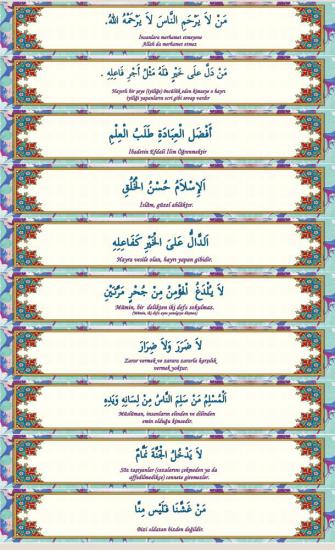 مَنْ لَا يَرْحَمِ النَّاسَ لَا يَرْحَمْهُ اللهُ.
İnsanlara merhamet etmeyene
Allah da merhamet etmez
مَنْ دَلَّ عَلَى خَيْرٍ فَلَهُ مِثْلُ أَجْرِ فَاعِلِهِ .
Hayırlı bir şeye (iyiliğe) öncülük eden kimseye o hayrı
iyiliği yapanların ecri gibi sevap vardır
أَفْضَلُ الْعِبَادَةِ طَلَبُ الْعِلْمِ
İbadetin Efdali İlim Öğrenmektir
اَلْإِسْلَامُ حُسْنُ الْخُلُقِ
İslâm, güzel ahlâktır.
اَلدَّالُّ عَلَى الْخَيْرِ كَفَاعِلِهِ
Hayra vesile olan, hayrı yapan gibidir.
لَا يُلْدَغُ الْمُؤْمِنُ مِنْ جُحْرٍ مَرَّتَيْنِ
Mümin, bir delikten iki defa sokulmaz.
(Mümin, iki defa aynı yanılgıya düşmez)
لَا ضَرَرَ وَلَا ضِرَارَ
Zarar vermek ve zarara zararla karşılık
vermek yoktur.
اَلْمُسْلِمُ مَنْ سَلِمَ النَّاسُ مِنْ لِسَانِهِ وَيَدِهِ
Müslüman, insanların elinden ve dilinden
emin olduğu kimsedir.
لَا يَدْخُلُ الْجَنَّةَ نَمَّامٌ
Söz taşıyanlar (cezalarını çekmeden ya da
affedilmedikçe) cennete giremezler.
مَنْ غَشَّنَا فَلَيْسَ مِنَّا
Bizi aldatan bizden değildir.